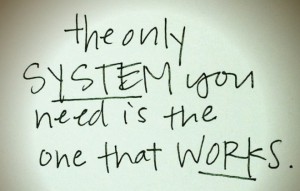 the only
SYSTEM you
need is the
one that WORKS.